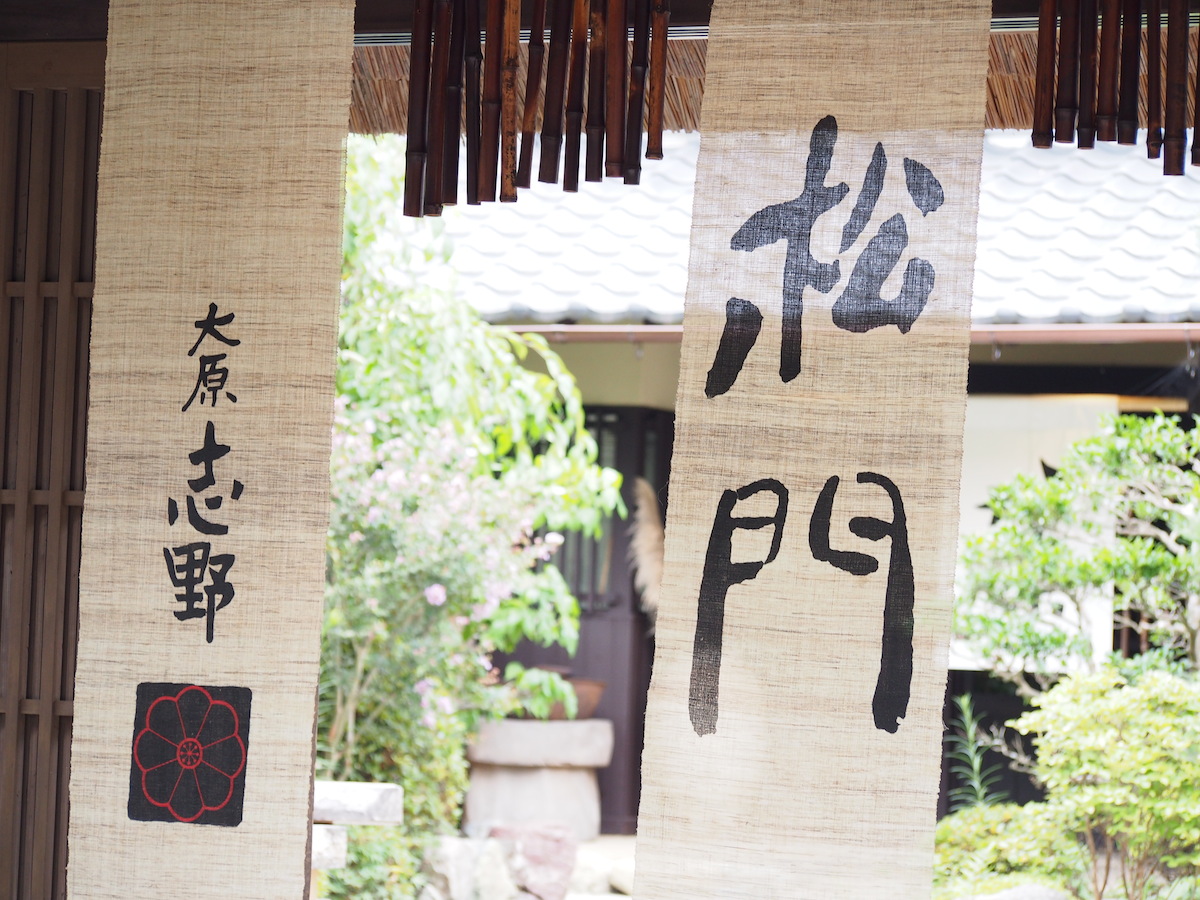 松門
大原志野